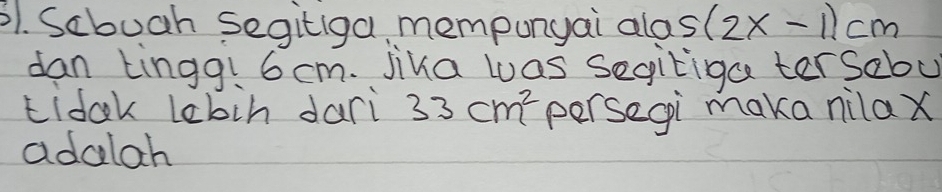 5). Sebuah segitiga, mempunyai alas (2x - 1) cm
dan tinggi 6 cm. Jika luas segitiga tersebu
tidak lebih dari 33 cm² persegi maka nilai x
adalah